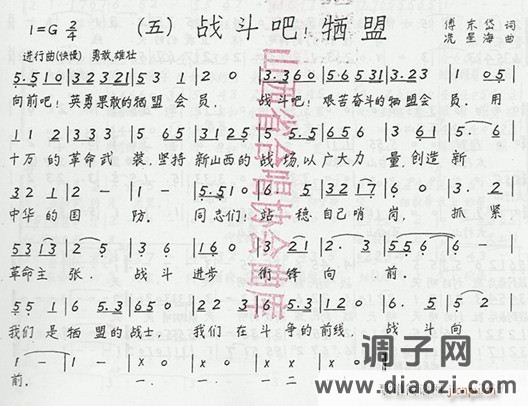 1=G 2/4 (五) 战斗吧！牺盟 傅东岱 词
冼星海 曲
进行曲(快慢) 勇敢、雄壮
5.5 1 0 | 3 2 3 2 1 | 5 3 1 | 2 0 | 3.3 6 0 | 5 6 5 3 1 | 3.2 3 | 1 0 5 |
向前吧！英勇果敢的牺盟会员。战斗吧！艰苦奋斗的牺盟会员。用
十万的革命武装，坚持新山西的战场，以广大力量，创造新
3 2 1 | 2 - | 1 - | 5.5 1 0 | 6. 5 | 3 2 1 7 | 6 0 | 3. 2 |
中华的国防。同志们！站稳自己哨岗，抓紧
5 3 1 3 | 2 5 | 3 6 | 1 6 0 | 3 2 1 | 2. 3 | 5 5 6 | 6 - |
革命主张。战斗进步冲锋向前。
5 5 1 | 6 5.3 | 6 5 0 | 2 2 3 | 6 5.3 | 1 2 0 | 6. 5 | 5 2 |
我们是牺盟的战士，我们在斗争的前线，战斗向
1 - | 1 - | x x | x x | x x | x x |
前。一 一 一 二
山西省合唱协会曲库
调子网
www.diaozi.com